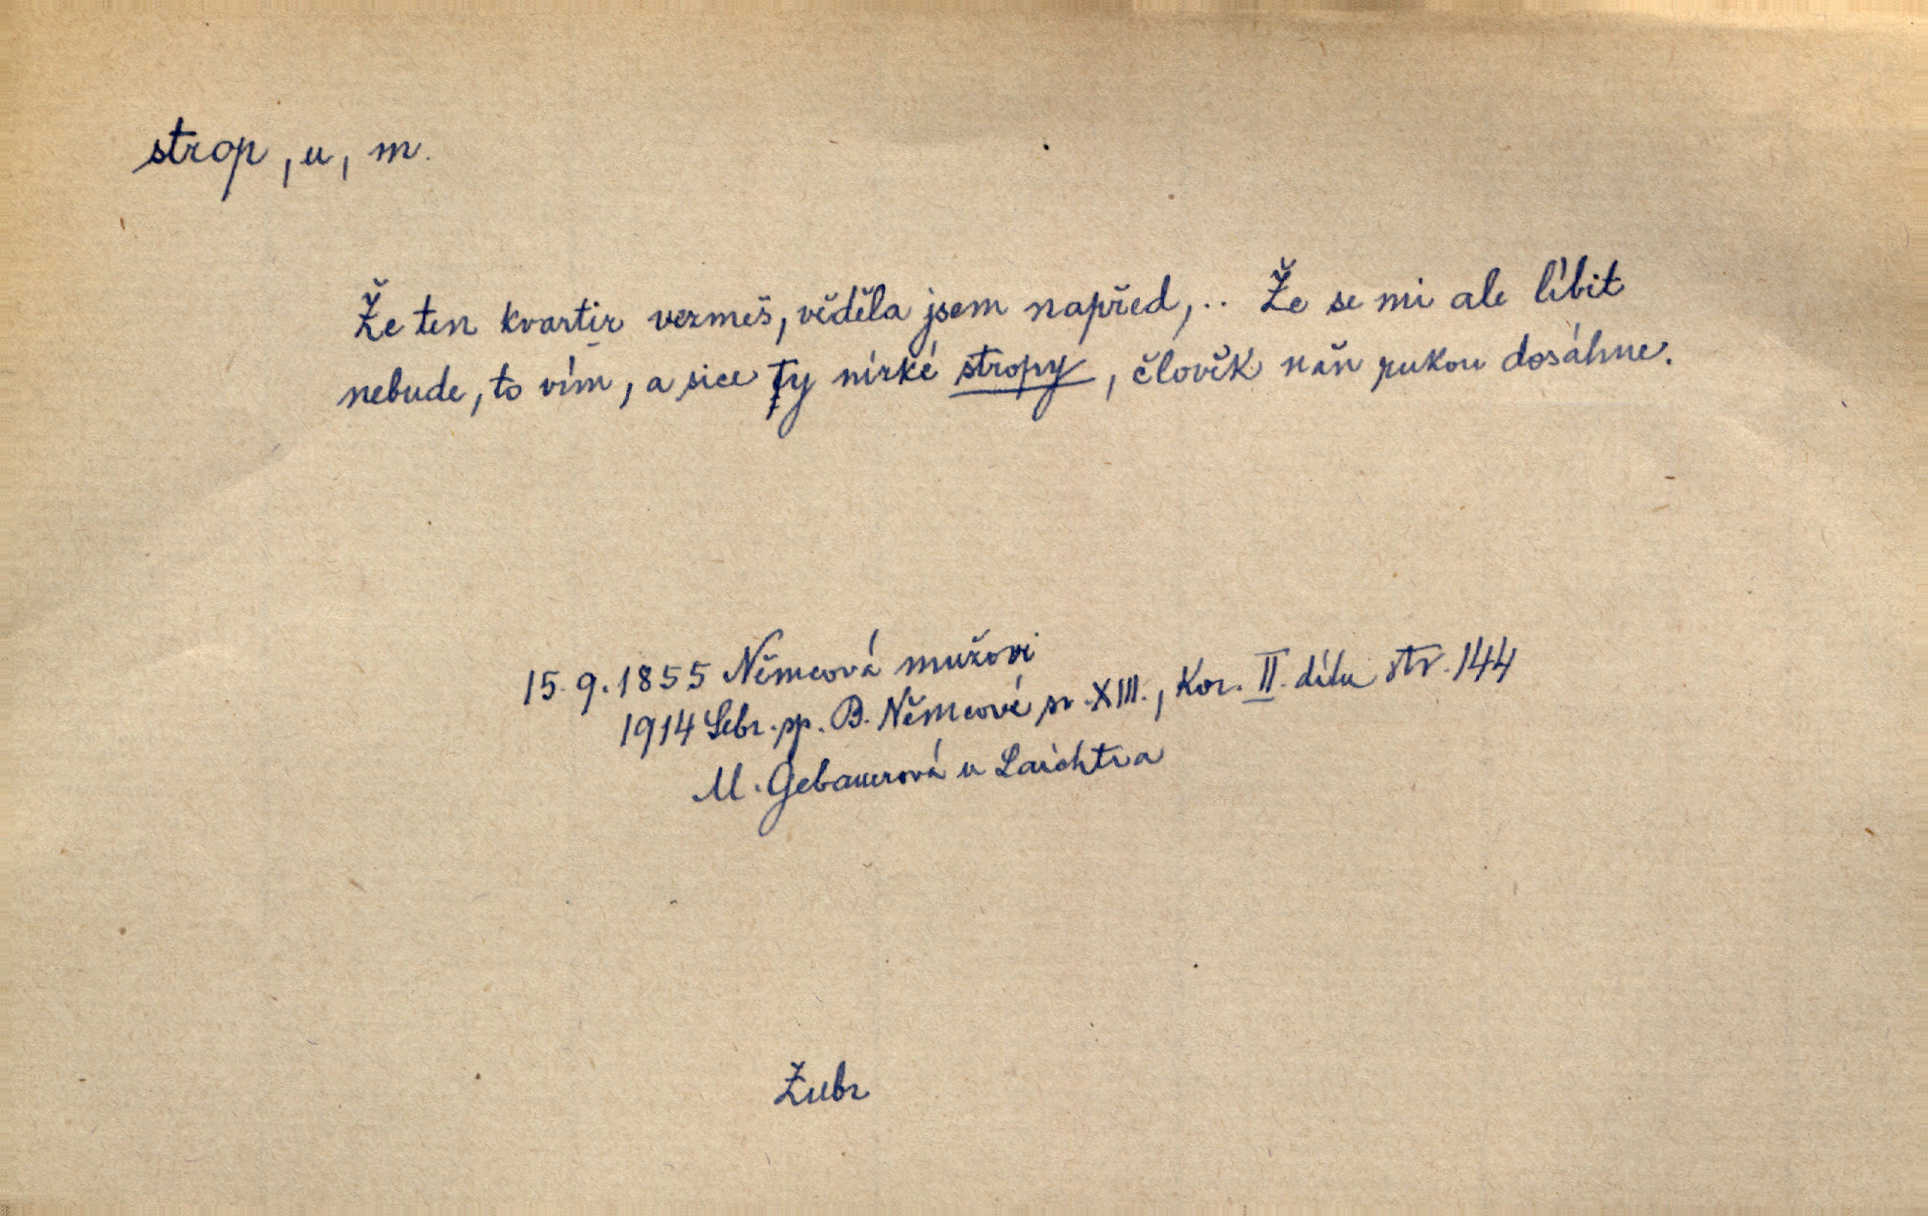 strop, u, m.
Že ten kvartir vezmeš, věděla jsem napřed, .. Že se mi ale líbit
nebude, to vím, a sice ty nízké stropy, člověk naň rukou dosáhne.
15. 9. 1855 Němcová mužovi
1914 Sebr. sp. B. Němcové sv. XIII., Kor. II. dílu str. 144
M. Gebauerová u Laichtra
Žubr